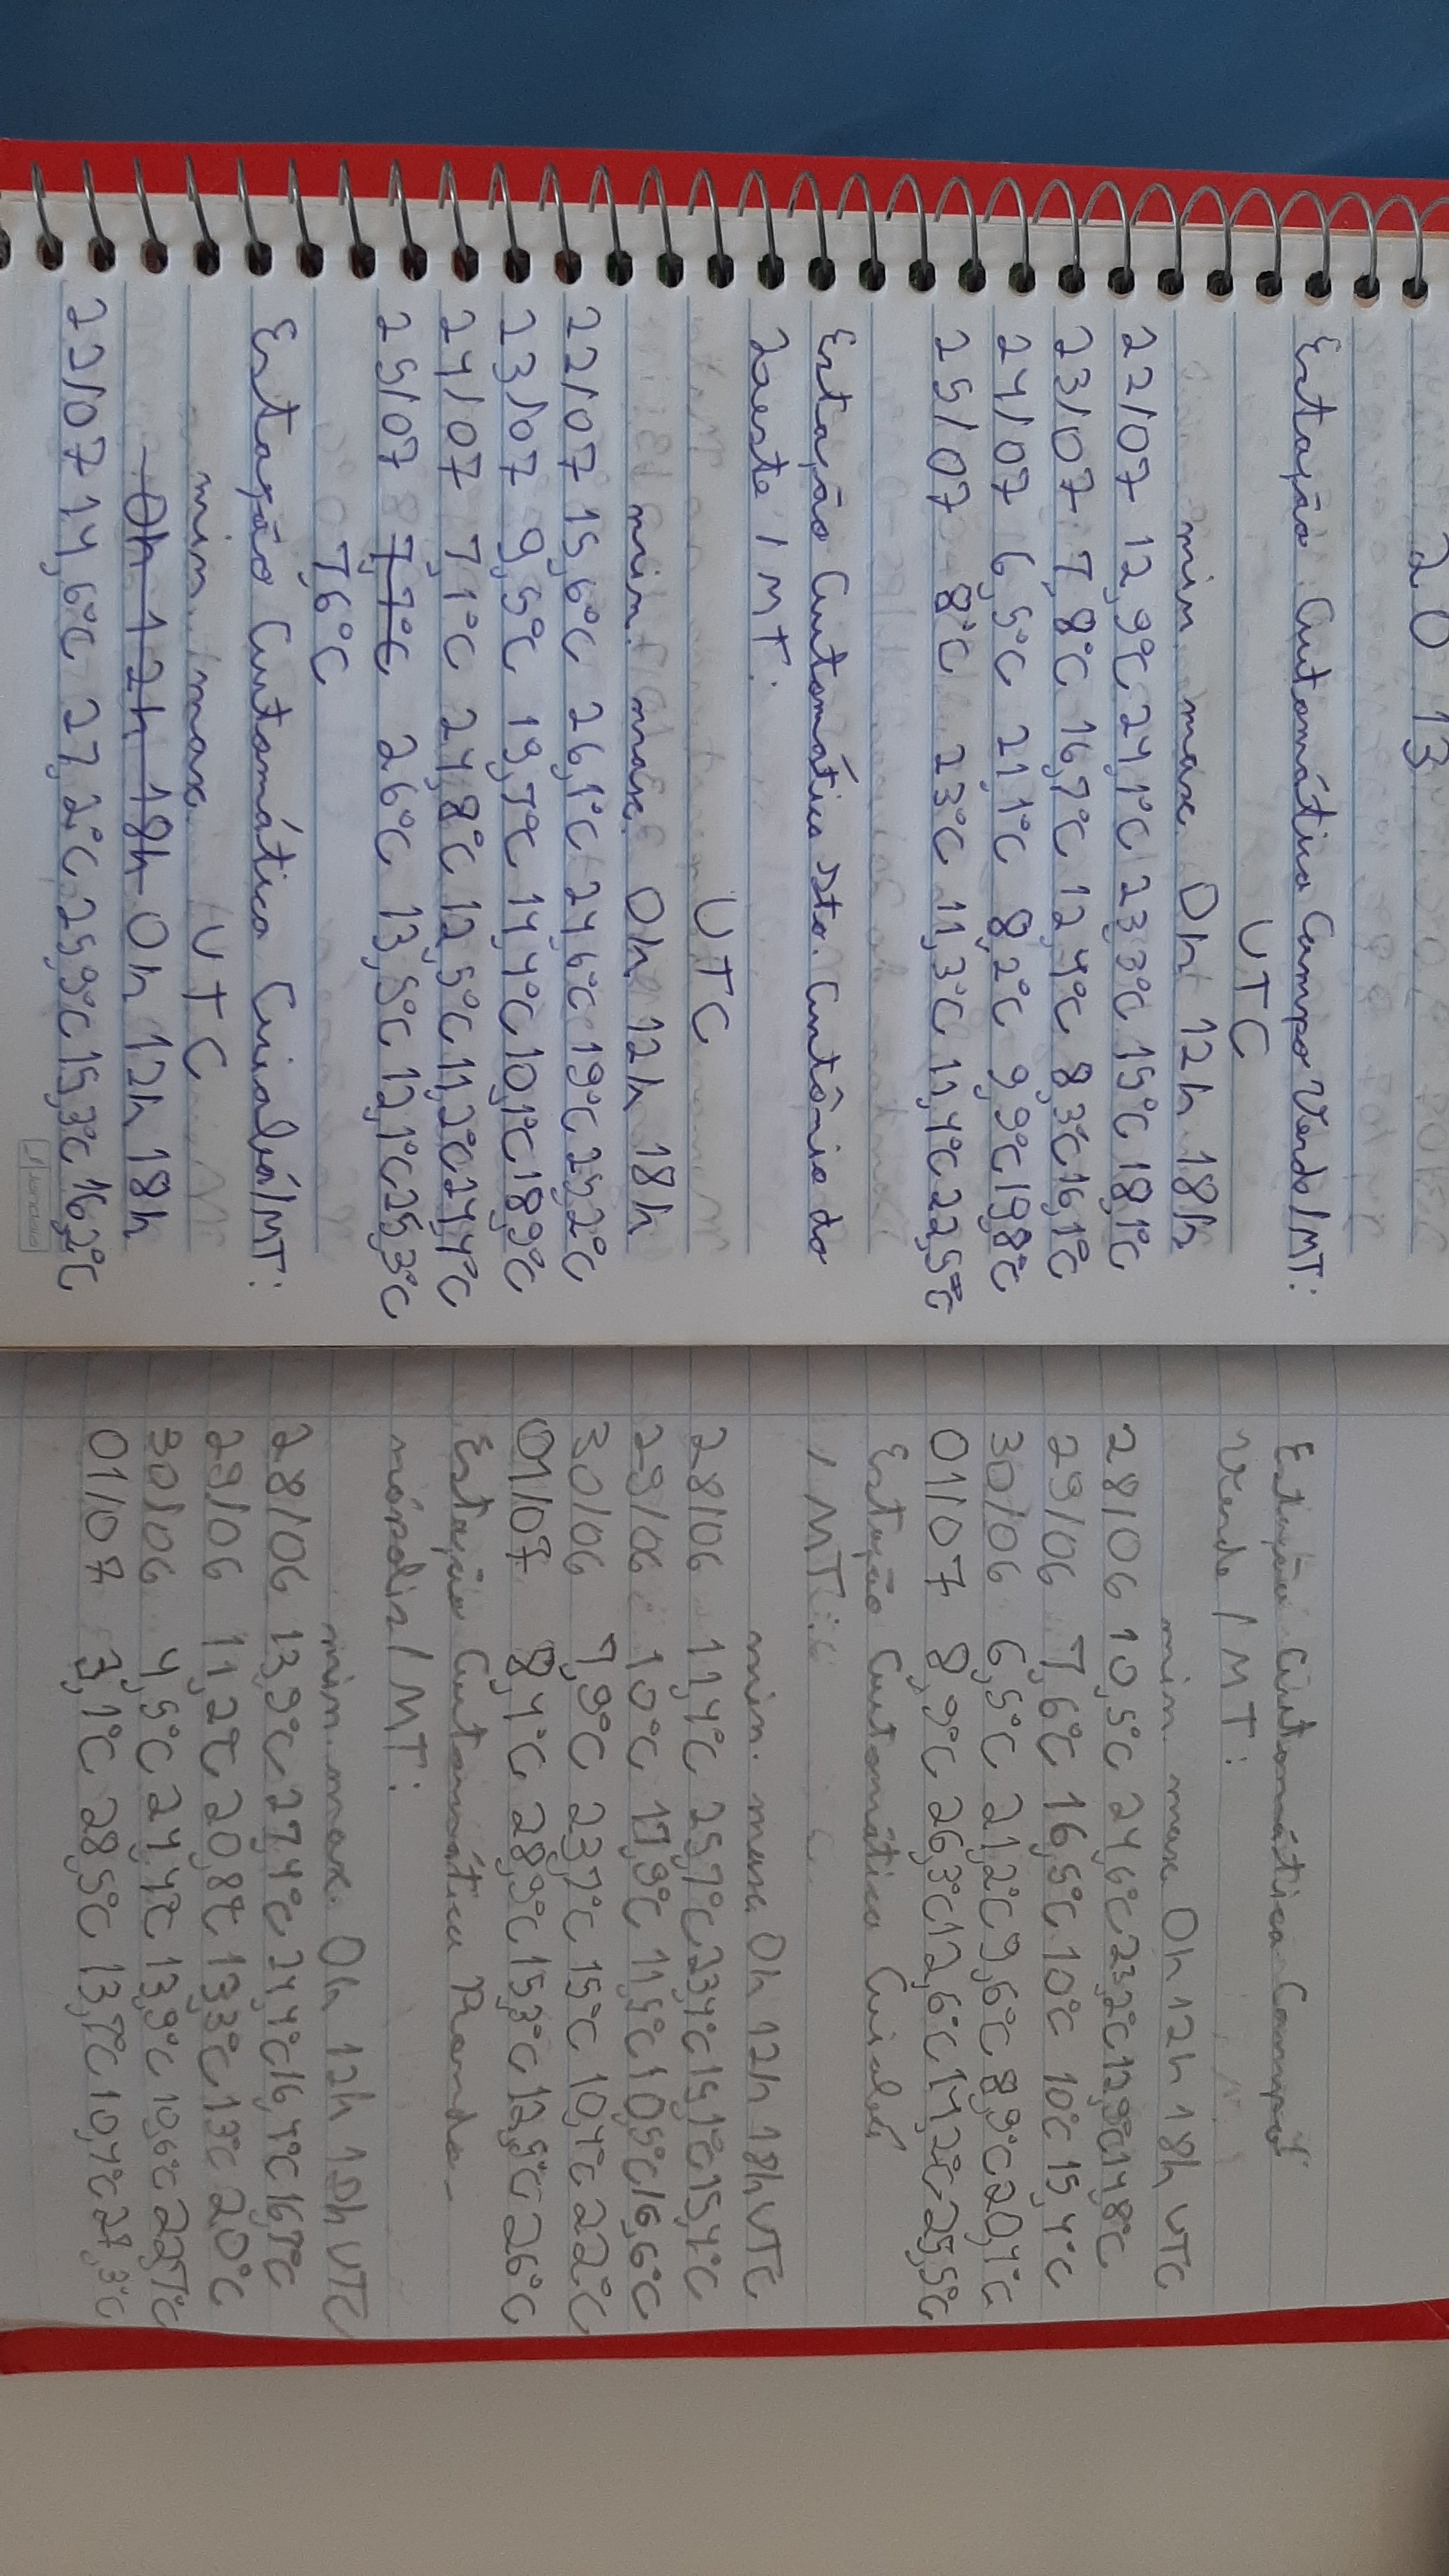 2013
Estação Automática Campo Verde/MT:
UTC
min max 0h 12h 18h
22/07 12,9°C 24,1°C 23,3°C 15°C 18,1°C
23/07 7,8°C 16,7°C 12,4°C 8,3°C 16,1°C
24/07 6,5°C 21,1°C 8,2°C 9,9°C 19,8°C
25/07 8°C 23°C 11,3°C 11,4°C 22,5°C
Estação Automática Sto. Antônio do
Leste / MT:
UTC
min. max. 0h 12h 18h
22/07 15,6°C 26,1°C 24,6°C 19°C 25,2°C
23/07 9,5°C 19,7°C 14,4°C 10,1°C 18,9°C
24/07 7,1°C 24,8°C 12,5°C 11,2°C 24,4°C
25/07 7,7°C 26°C 13,5°C 12,1°C 25,3°C
7,6°C
Estação Automática Cuiabá/MT:
min. max. UTC
0h 12h 18h 0h 12h 18h
22/07 14,6°C 27,2°C 25,9°C 15,3°C 16,2°C
Estação Automática Campo
Verde / MT:
min max 0h 12h 18h UTC
28/06 10,5°C 24,6°C 23,2°C 12,9°C 14,8°C
29/06 7,6°C 16,5°C 10°C 10°C 15,4°C
30/06 6,5°C 21,2°C 9,6°C 8,9°C 20,4°C
01/07 8,9°C 26,3°C 12,6°C 14,2°C 25,5°C
Estação Automática Cuiabá
/ MT:
min. max. 0h 12h 18h UTC
28/06 11,4°C 25,7°C 23,4°C 15,1°C 15,4°C
29/06 10°C 17,9°C 11,5°C 10,5°C 16,6°C
30/06 7,9°C 23,7°C 15°C 10,4°C 22°C
01/07 8,4°C 28,9°C 15,3°C 12,5°C 26°C
Estação Automática Rondo-
nópolis / MT:
min. max. 0h 12h 18h UTC
28/06 13,9°C 27,4°C 24,4°C 16,4°C 16,7°C
29/06 11,2°C 20,8°C 13,3°C 13°C 20°C
30/06 4,5°C 24,4°C 13,9°C 10,6°C 22,7°C
01/07 3,1°C 28,5°C 13,7°C 10,4°C 27,3°C